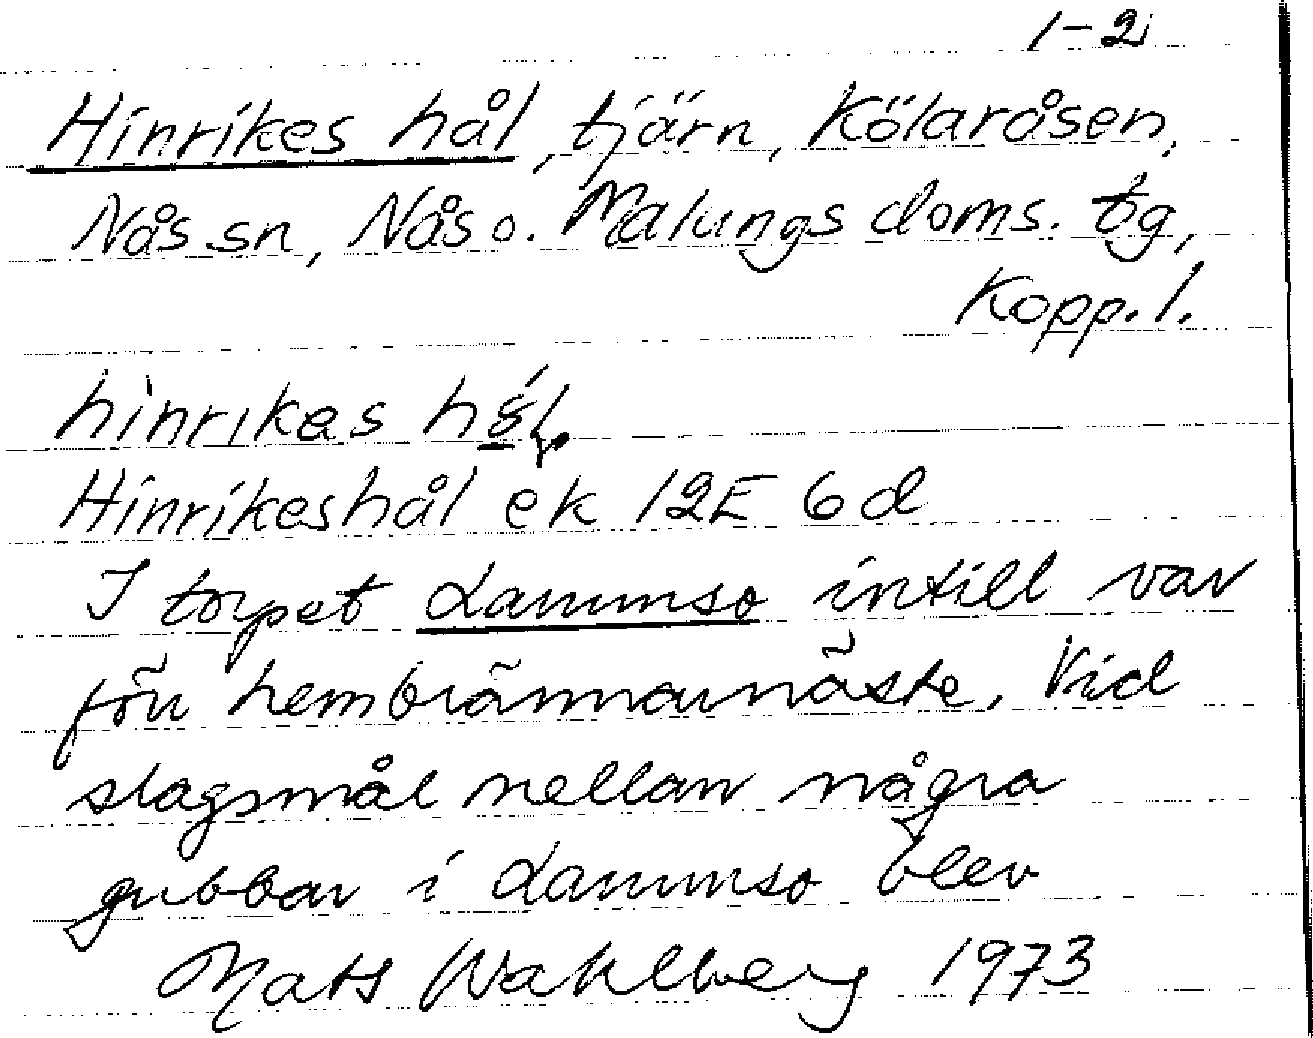 1-2
Hinrikes hål, tjärn, Kölaråsen,
Nås sn, Nås o. Malungs doms. tg,
Kopp. l.
hinrikes
Hinrikeshål ek 12E 6d
I torpet Lammso intill var
förr hembrännarnäste. Vid
slagsmål mellan några
gubbar i Lammso blev
Mats Wahlberg 1973